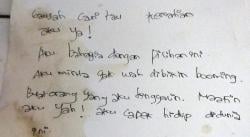 Gausah Cari tau kematian
aku ya!
Aku bahagia dengan pilihan ini.
Aku minta gak usah dibikin booming.
Buat orang yang aku tinggalin. Maafin
aku yah! aku capek hidup didunia
ini